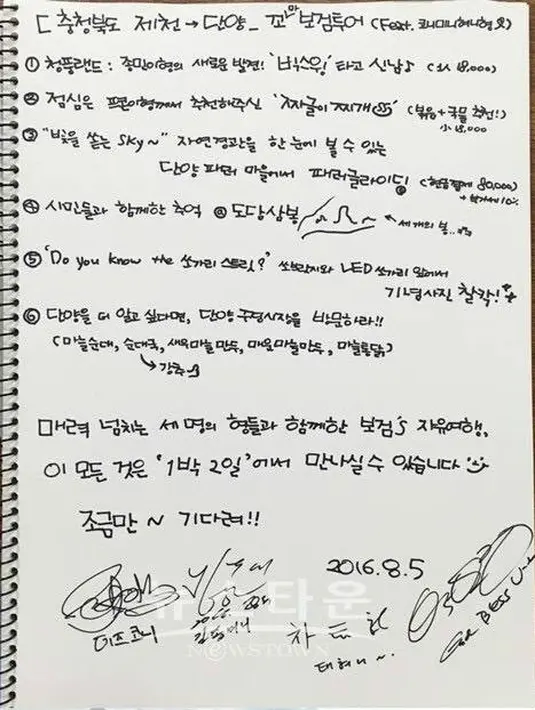 [ 충청북도 제천→단양_ 꼬마보검투어 (Feat. 코니미니혀니형 옷)
① 청풍랜드 : 종민이형의 새로운 발견! '빅스윙' 타고 신남♪ (1人 18,000)
② 점심은 준현이형께서 추천해주신 '짜글이찌개' (볶음+국물 추천!)
小 18,000
③ "빛을 쏟는 sky~" 자연경관을 한 눈에 볼 수 있는
단양 패러 마을에서 패러글라이딩 (현금결제 80,000)
+부가세 10%
④ 시민들과 함께한 추억 @ 도담삼봉 ← 세개의 봉..
⑤ 'Do you know the 쏘가리 스트릿?' 쏘브라지와 LED쏘가리 앞에서
기념사진 찰칵!
⑥ 단양을 더 알고 싶다면, 단양 구경시장을 방문하라!!
(마늘순대, 순대국, 새우마늘만두, 매운마늘만두, 마늘통닭)
→강추
매력 넘치는 세 명의 형들과 함께한 보검's 자유여행,
이 모든 것은 '1박 2일'에서 만나실 수 있습니다
조금만~ 기다려!!
2016.8.5
데프코니
차 태 현
태혀니~.
God BLESS U
뉴스타운
NEWSTOWN